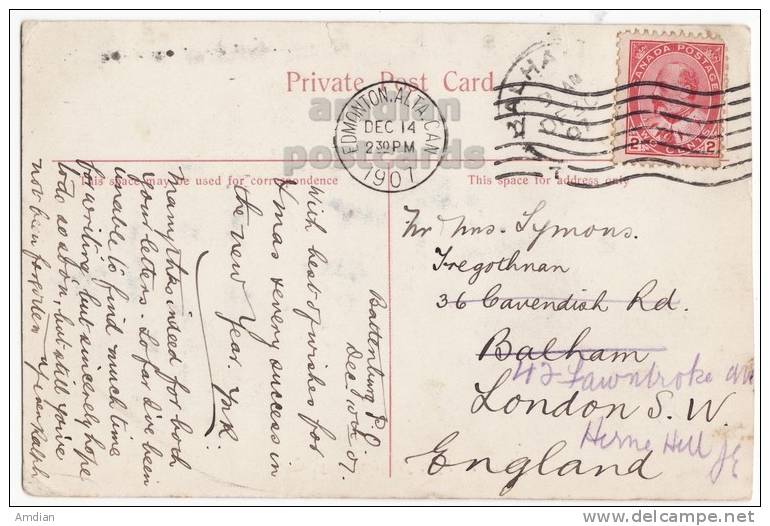 Private Post Card
EDMONTON. ALTA. CAN.
DEC 14
2 30 PM
1907
BALHA
CANADA POSTAGE
2 CENTS 2
amdian
postcards
This space may be used for correspondence
This space for address only
Battenburg P.O.
Dec. 10th 07.
With best of wishes for
Xmas & every success in
the new Year.
Many thks indeed for both
your letters. So far I've been
unable to find much time
for writing, but sincerely hope
to do so soon, but still you've
not been forgotten Ralph
Mr Mrs. Symons.
Tregothnan
36 Cavendish Rd.
Balham
42
London S. W.
Herne Hill SE
England
Amdian